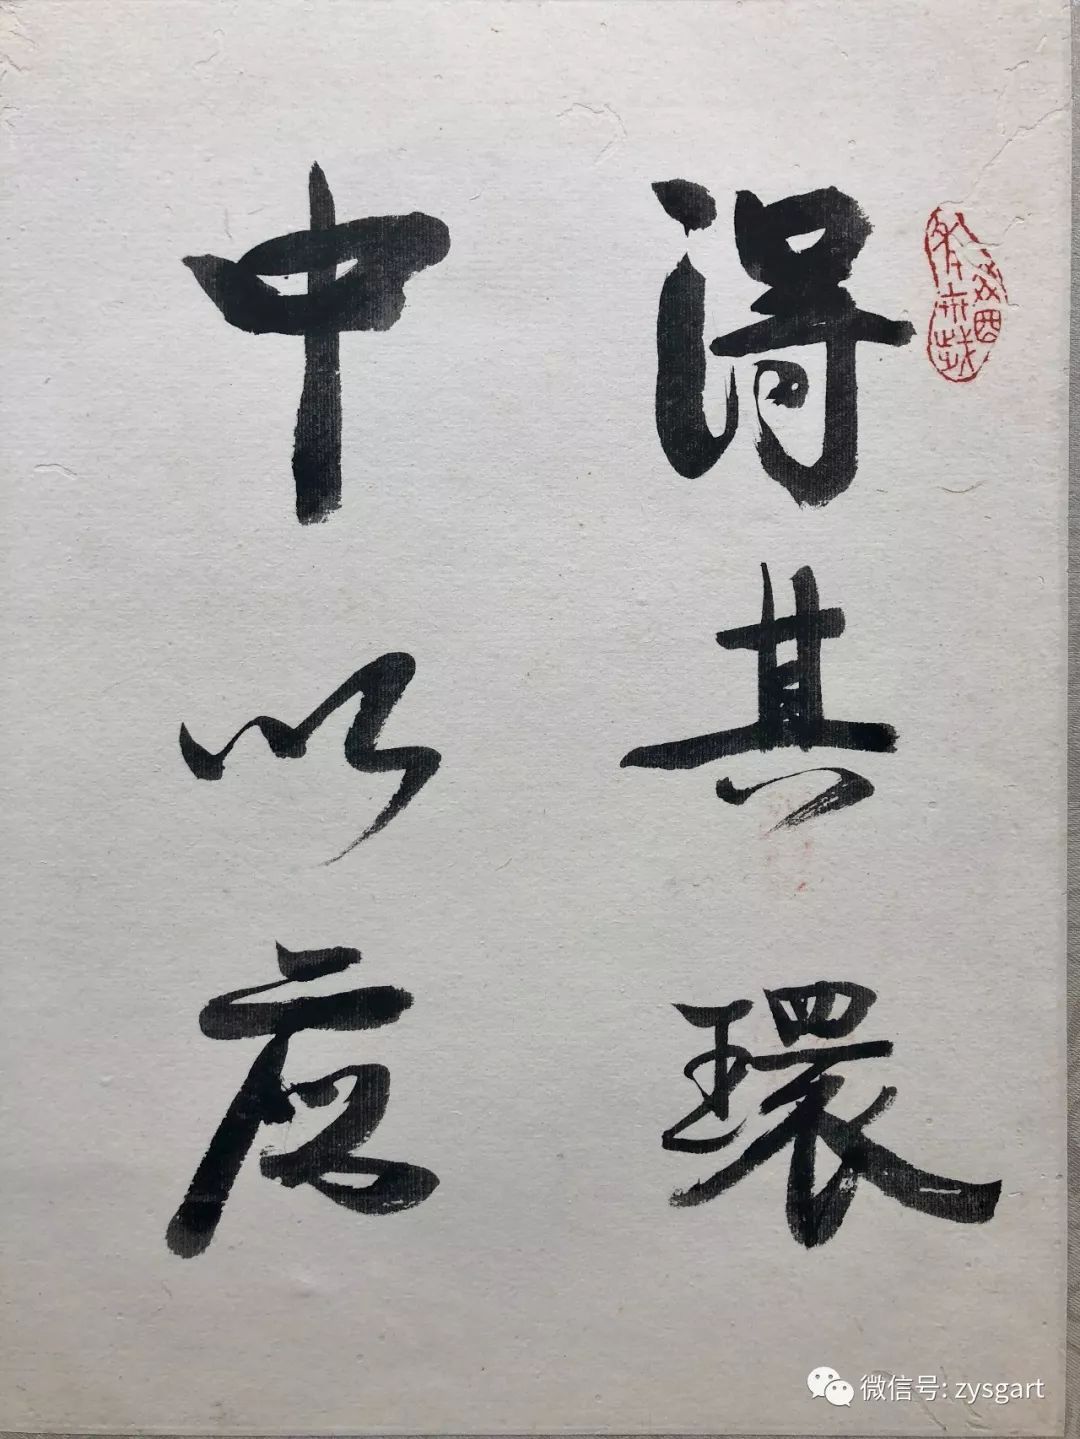 得其環
中以應
癸酉
微信号: zysgart